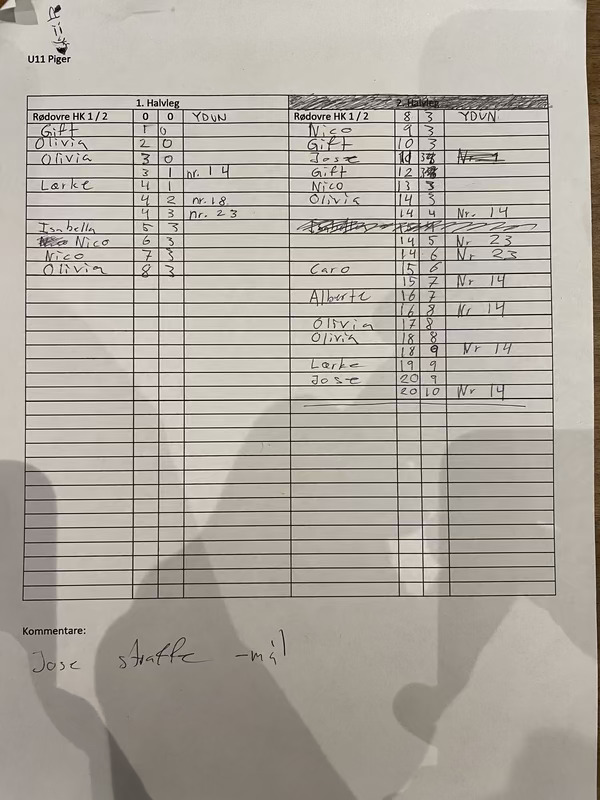 U11 Piger
1. Halvleg
Rødovre HK 1 / 2 0 0 YDUN
Gift 1 0
Olivia 2 0
Olivia 3 0
3 1 nr. 14
Lærke 4 1
4 2 nr. 18
4 3 nr. 23
Isabella 5 3
Nico 6 3
Nico 7 3
Olivia 8 3
2. Halvleg
Rødovre HK 1 / 2 8 3 YDUN
Nico 9 3
Gift 10 3
Jose 11 3
Gift 12 3
Nico 13 3
Olivia 14 3
14 4 Nr. 14
14 5 Nr 23
14 6 Nr 23
Caro 15 6
15 7 Nr 14
Alberte 16 7
16 8 Nr 14
Olivia 17 8
Olivia 18 8
18 9 Nr 14
Lærke 19 9
Jose 20 9
20 10 Nr 14
Kommentare:
Jose straffe -mål